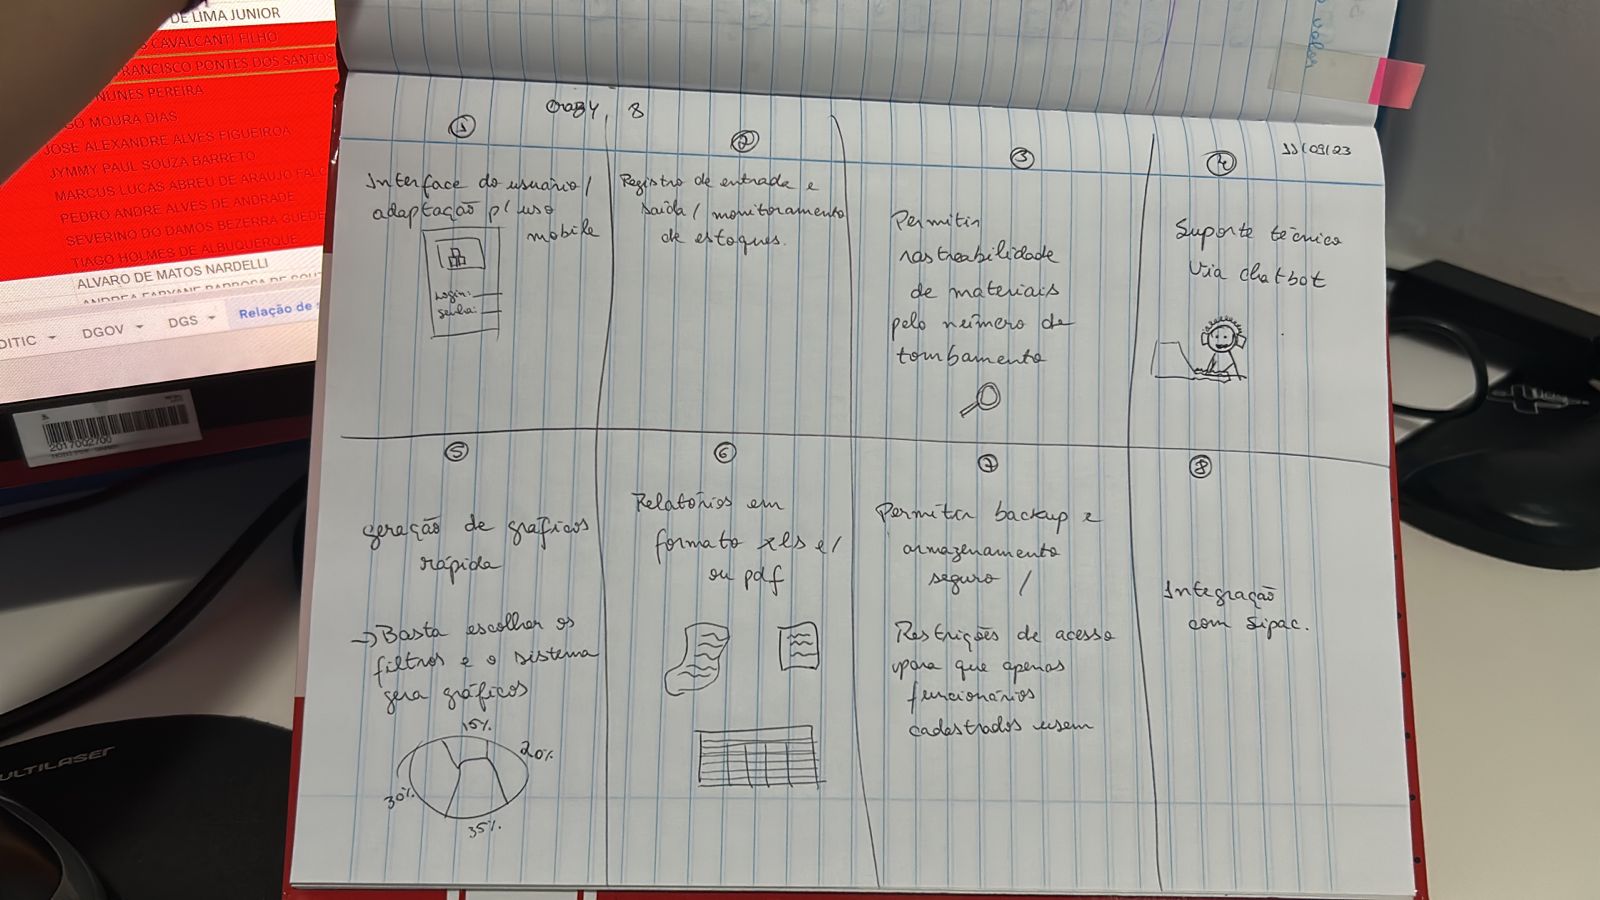 DE LIMA JUNIOR
CAVALCANTI FILHO
FRANCISCO PONTES DOS SANTOS
NUNES PEREIRA
GO MOURA DIAS
JOSE ALEXANDRE ALVES FIGUEIROA
JYMMY PAUL SOUZA BARRETO
MARCUS LUCAS ABREU DE ARAUJO FALC
PEDRO ANDRE ALVES DE ANDRADE
SEVERINO DO DAMOS BEZERRA GUEDE
TIAGO HOLMES DE ALBUQUERQUE
ALVARO DE MATOS NARDELLI
DITIC DGOV DGS Relação de
2017002700
ULTILASER
8
11/09/23
1
Interface do usuário/
adaptação p/ uso
mobile
Login:
senha:
2
Registro de entrada e
saída/ monitoramento
de estoques.
3
Permitir
rastreabilidade
de materiais
pelo número de
tombamento
4
Suporte técnico
via chatbot
5
geração de gráficos
rápida
→ Basta escolher os
filtros e o sistema
gera gráficos
15%
20%
30%
35%
6
Relatórios em
formato xls e/
ou pdf
7
Permitir backup e
armazenamento
seguro /
Restrições de acesso
para que apenas
funcionários
cadastrados usem
8
Integração
com Sipac.